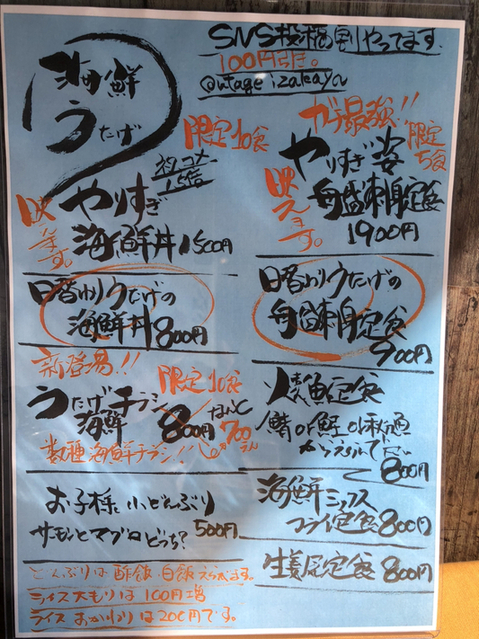 海鮮
うたげ
SNS投稿割やってます。
100円引き。
@utage izakaya
限定10食
ネタ、コメ
1.5倍
映えます。
やりすぎ
海鮮丼1500円
日替わりうたげの
海鮮丼800円
新登場!!
限定10食
うたげチラシ
海鮮
800円
700
数種海鮮チラシ!
お子様に小どんぶり
サーモンとマグロどっち?
500円
どんぶりは酢飯、白飯えらべます。
ライス大もりは100円増
ライスおかわりは200円です。
限定
5食
やりすぎ
舟盛刺身定食
1900円
映えます。
日替わりうたげの
舟盛刺身定食
900円
焼魚定食
鯖or鮭or秋魚
からえらんで下さい
800円
海鮮ミックス
フライ定食800円
生姜尻定食800円